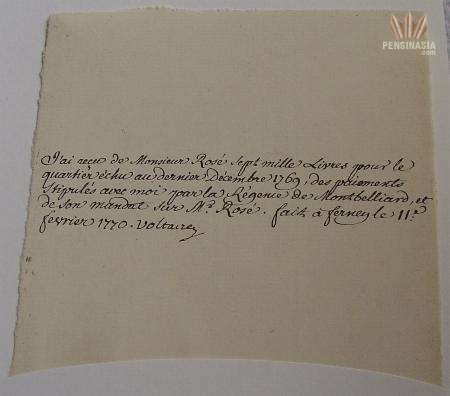 PENSINASIA
.COM
J'ai reçu de Monsieur Rosé Sept mille Livres pour le
quartier échu au dernier Décembre 1769, des paiements
Stipulés avec moi par la Régence de Montbelliard, et
de son mandat sur Mr. Rosé. fait à ferney le 11e.
fevrier 1770. Voltaire